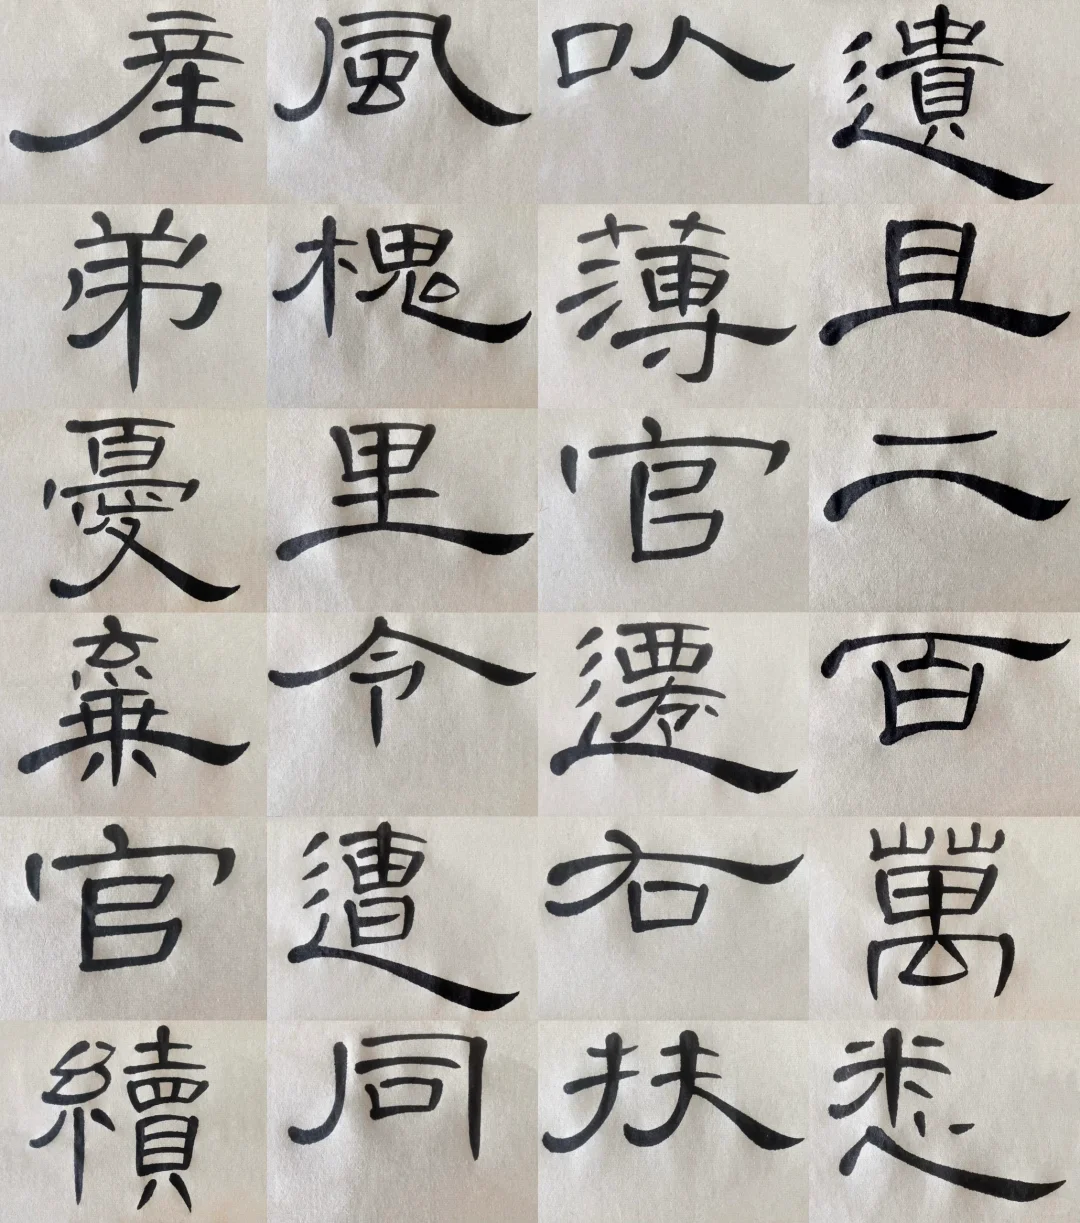 遺且二百萬悉
以薄官遷右扶
風槐里令遭同
産弟憂棄官續